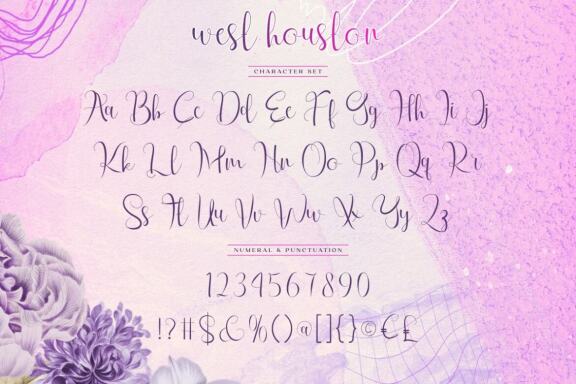 west houston
CHARACTER SET
Aa Bb Cc Dd Ee Ff Gg Hh Ii Jj
Kk Ll Mm Nn Oo Pp Qq Rr
Ss Tt Uu Vv Ww Xx Yy Zz
NUMERAL & PUNCTUATION
1234567890
!?#$&%()@[]{}©€£